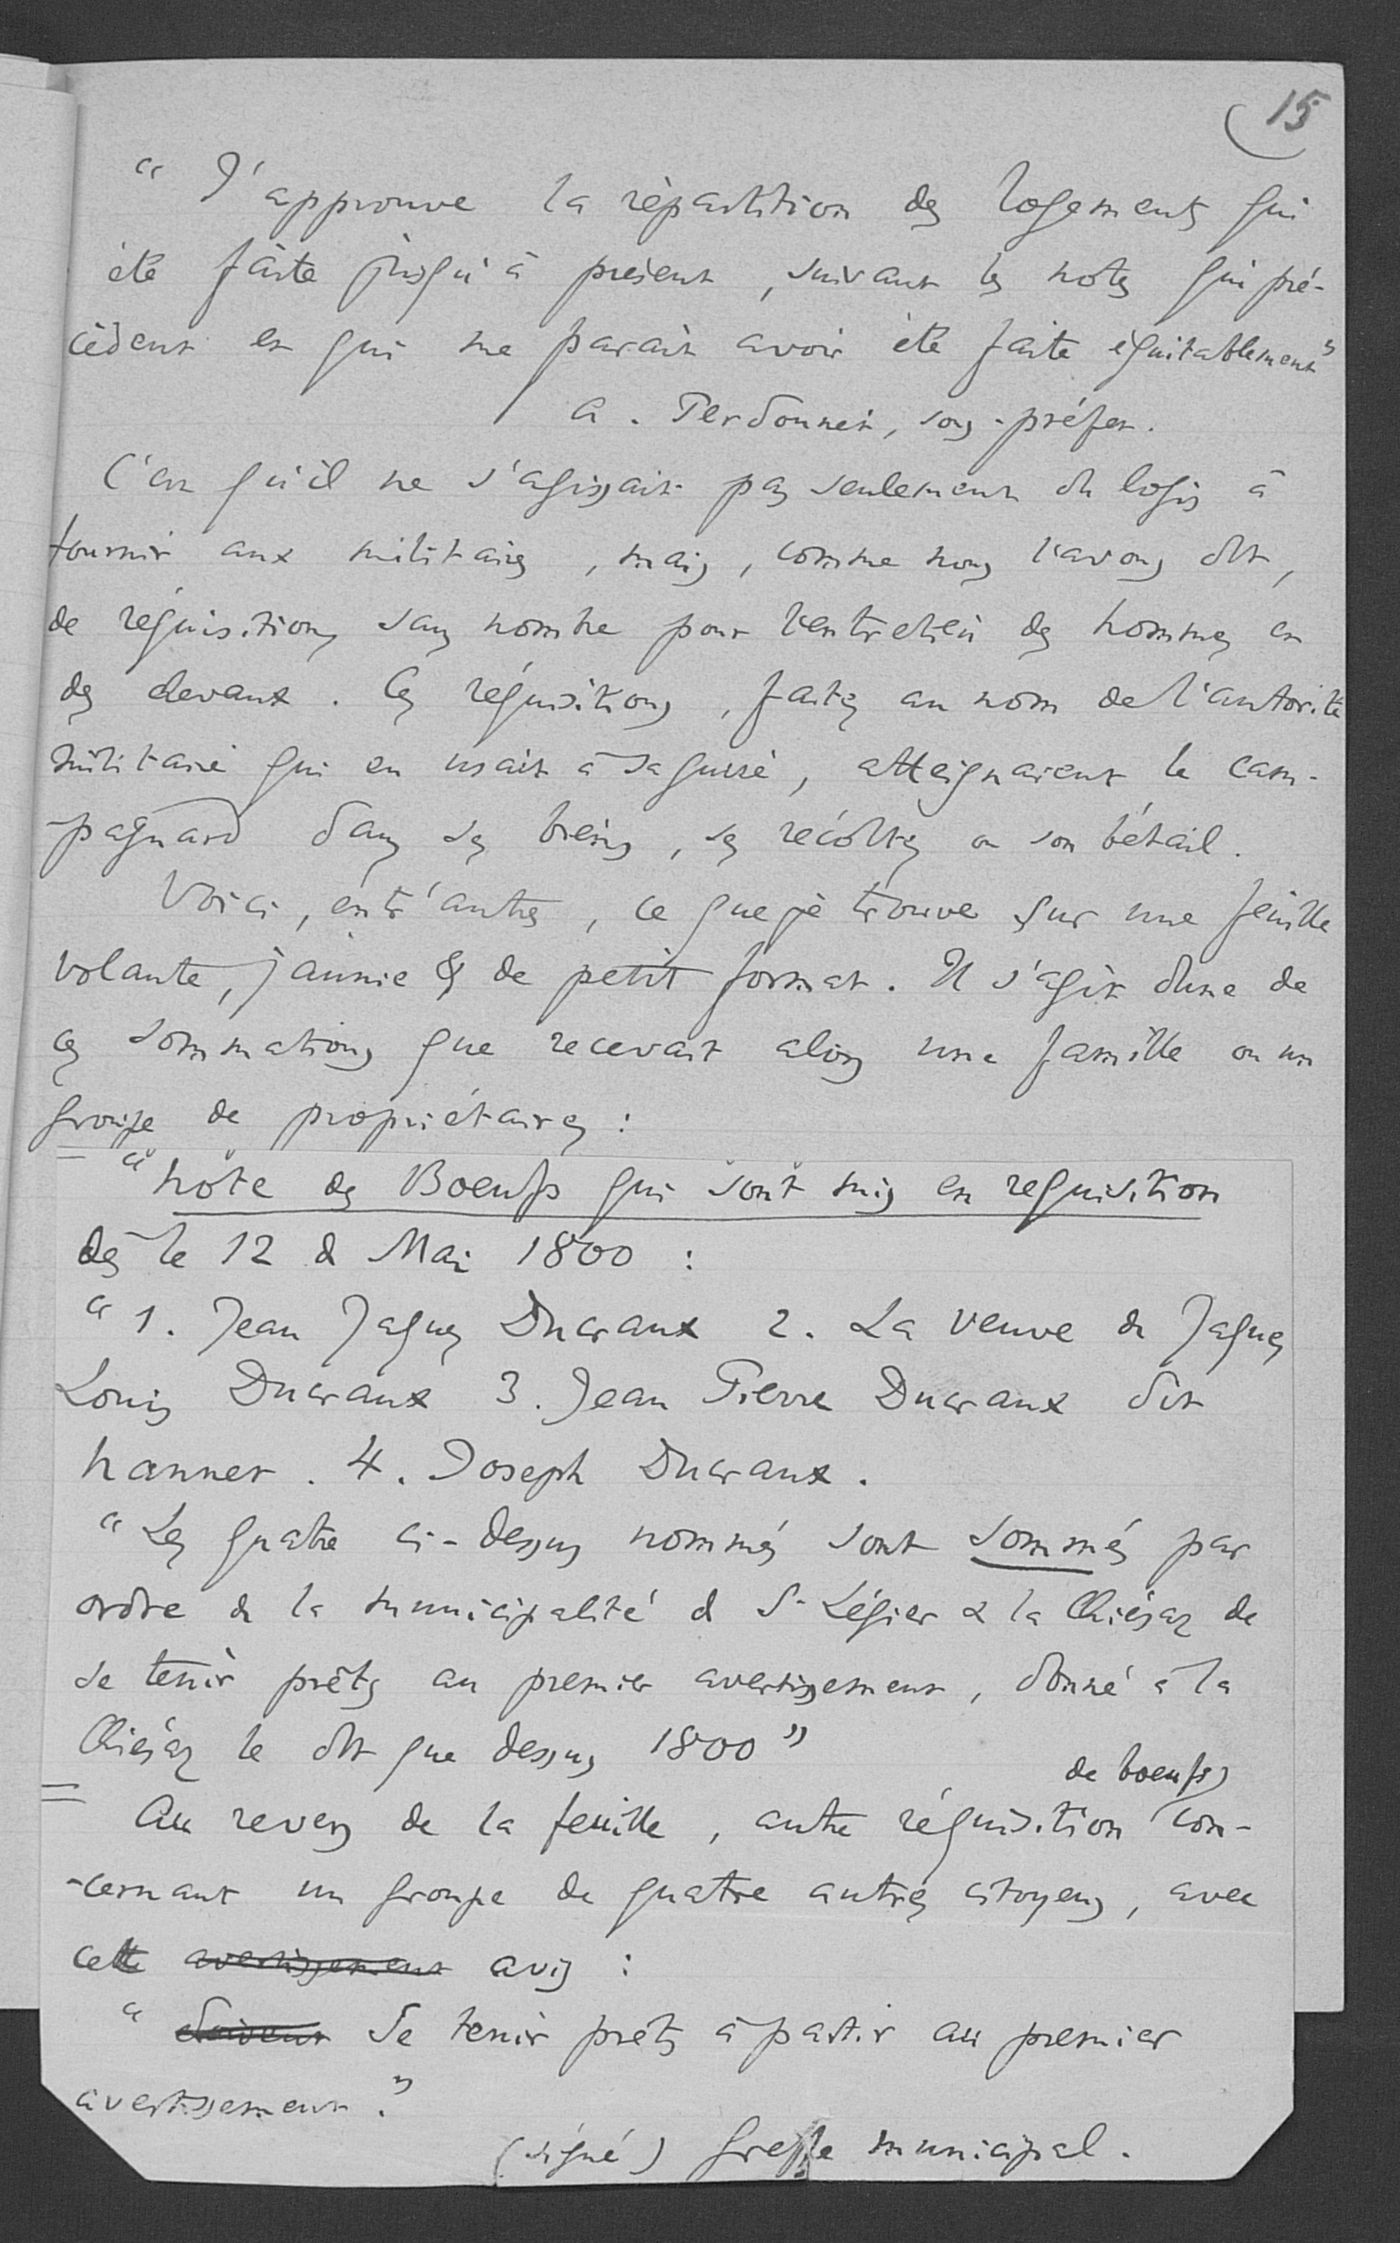 15
" J'approuve la répartition des logements qui
été faite jusqu'à présent, suivant les notes qui pré-
cèdent et qui me parait avoir été faite équitablement"
A. Perdonnet, sous-préfet.
C'est qu'il ne s'agissait pas seulement du logis à
fournir aux militaires, mais, comme nous l'avons dit,
de réquisitions sans nombre pour l'entretien des hommes et
des chevaux. Ces réquisitions, faites au nom de l'autorité
militaire qui en usait à sa guise, atteignaient le cam-
-pagnard dans ses biens, ses récoltes ou son bétail.
Voici, entr'autres, ce que je trouve sur une feuille
volante, jaunie & de petit format. Il s'agit d'une de
ces sommations que recevait alors une famille ou un
groupe de propriétaires :
= " Note des Boeufs qui sont mis en requisition
dès le 12 de Mai 1800 :
" 1. Jean Jaques Ducraux 2. La veuve de Jaques
Louis Ducraux 3. Jean Pierre Ducraux dit
hanner. 4. Joseph Ducraux.
" Les quatre ci-dessus nommés sont sommés par
ordre de la municipalité de St-Légier & la Chiésaz de
se tenir prêts au premier avertissement, donné à la
Chiésaz le dit que dessus 1800 "
de boeufs
= Au revers de la feuille, autre réquisition con-
-cernant un groupe de quatre autres citoyens, avec
cette avertissement avis :
" doivent Se tenir prêts à partir au premier
avertissement."
(signé) Greffe municipal.